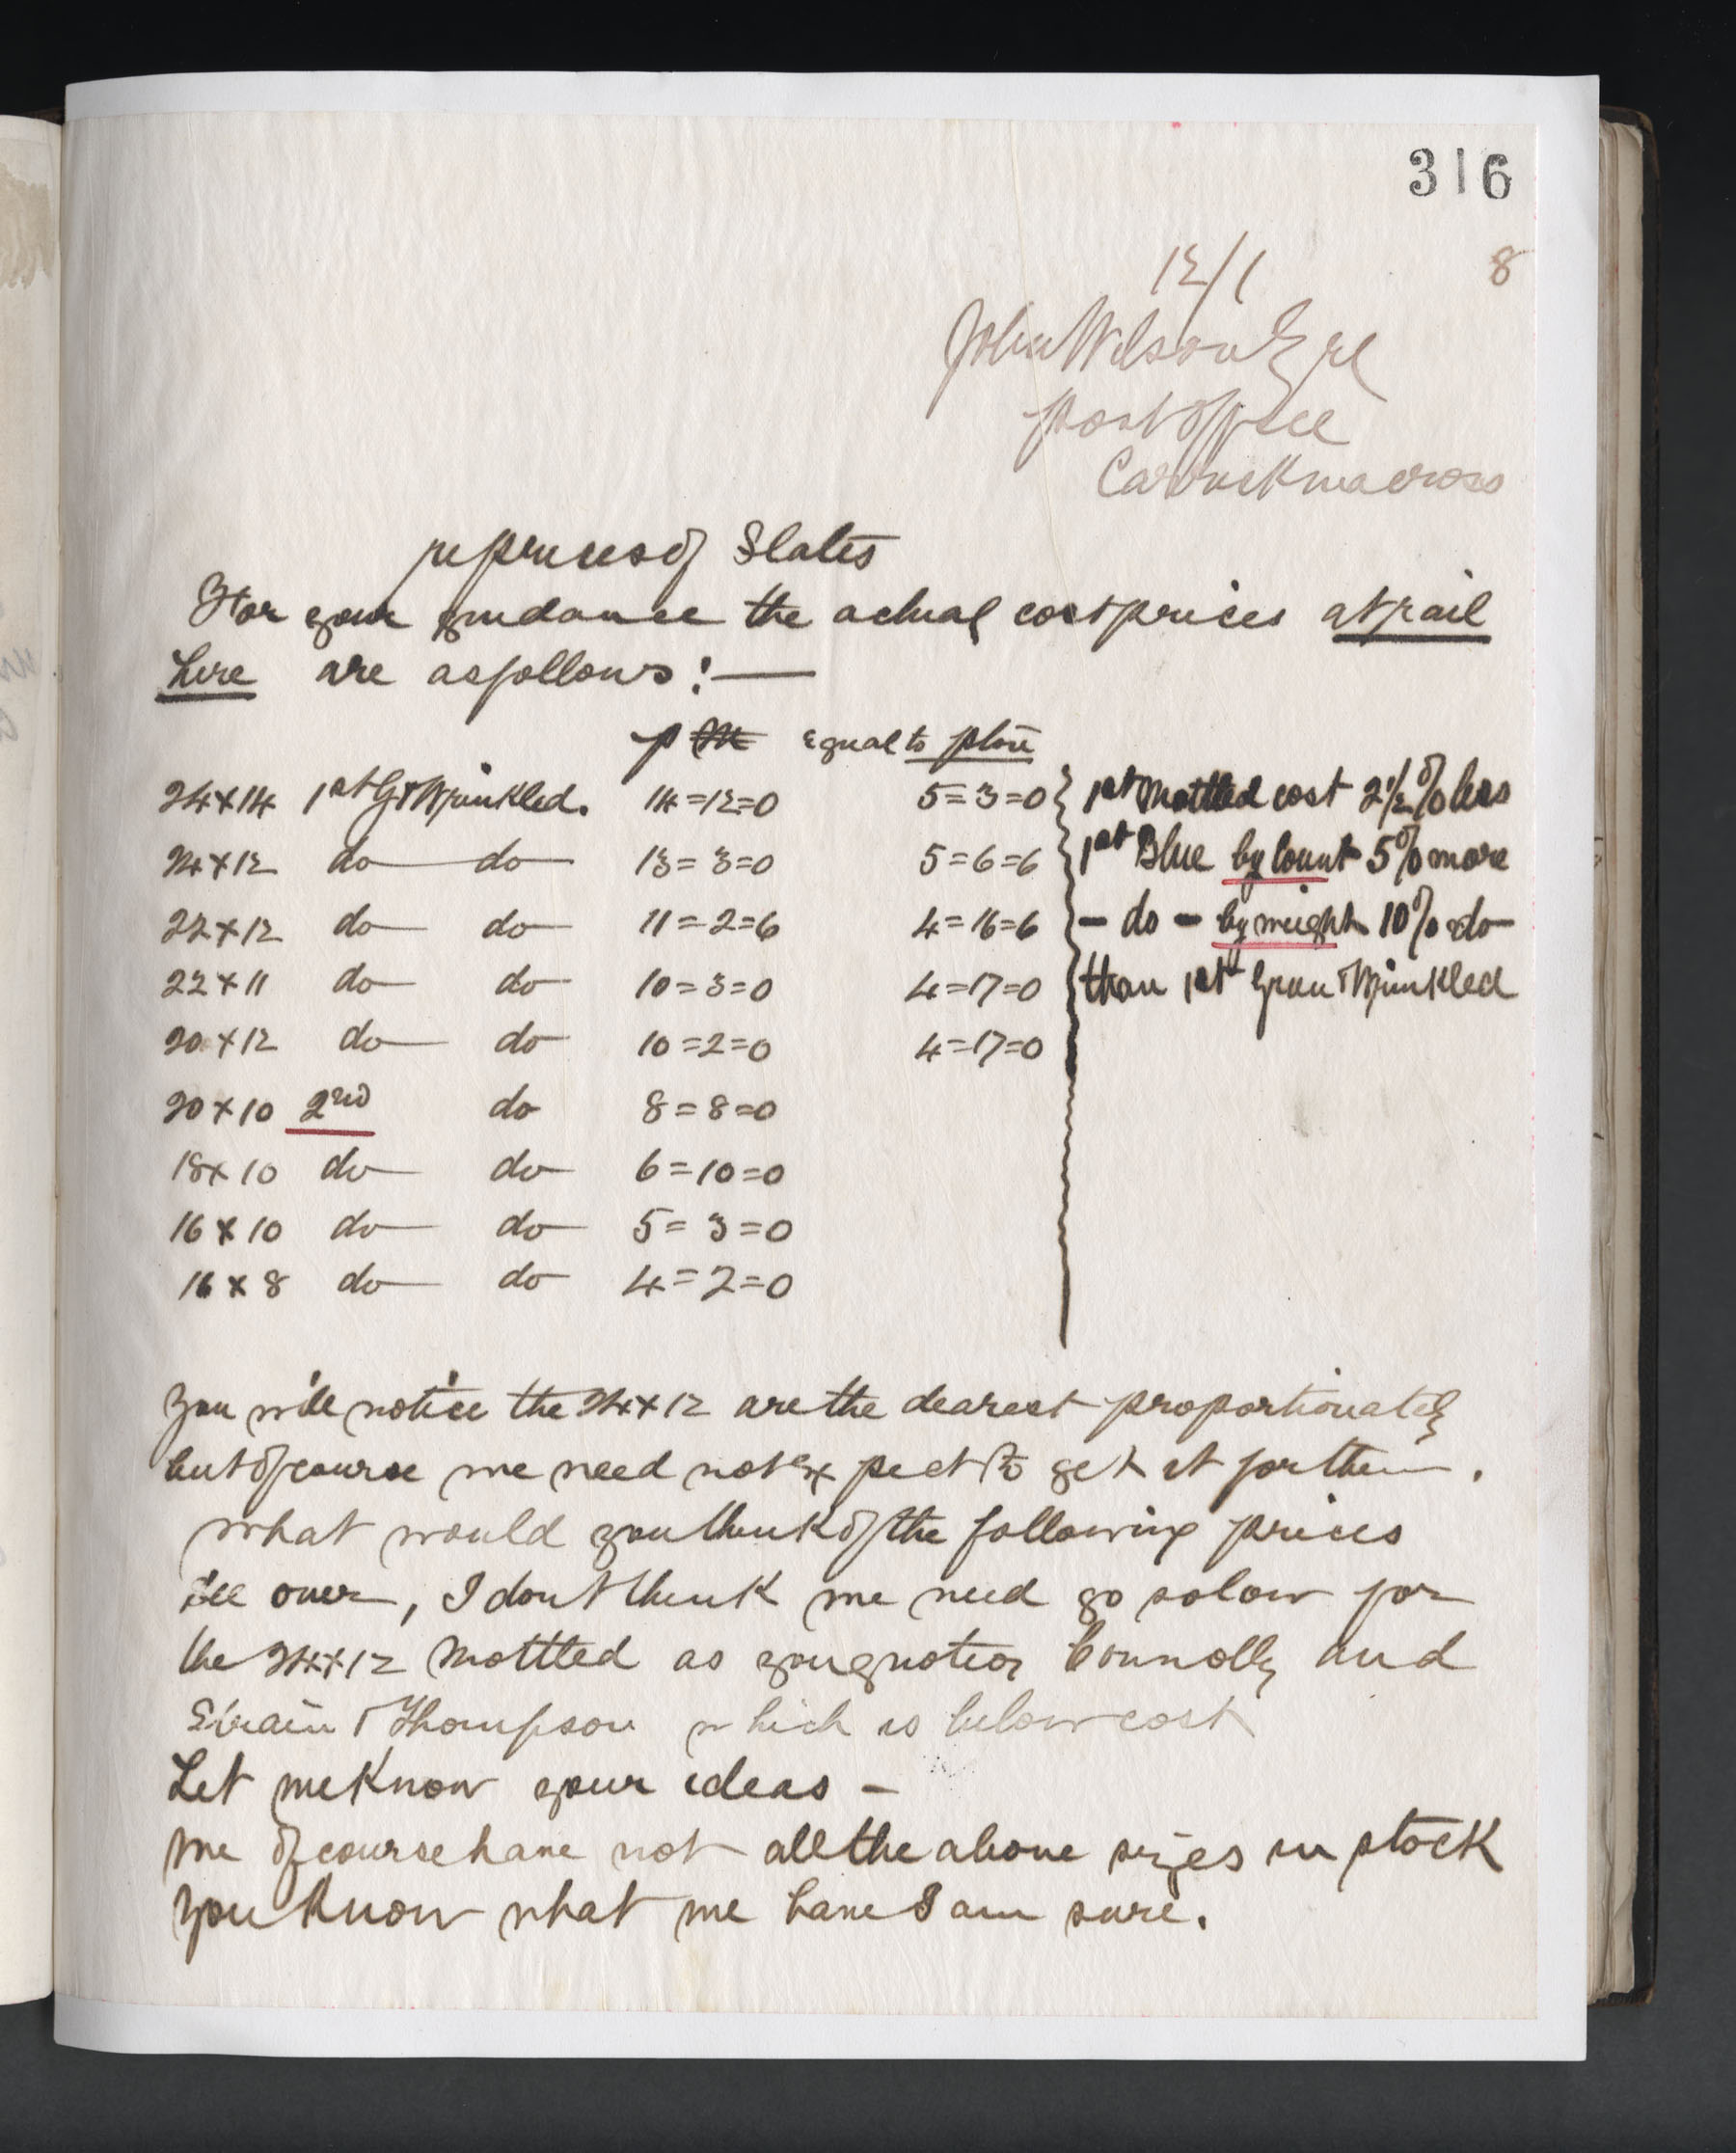 316
12/1 8
John Wilson Esq
post office
Carrickmacross
re prices of Slates
For your guidance the actual cost prices at rail
here are as follows:—
p M equal to p ton
24x14 1st G & Wrinkled. 14=12=0 5=3=0 } 1st Mottled cost 2½% less
24x12 do do 13=3=0 5=6=6 } 1st Blue by count 5% more
22x12 do do 11=2=6 4=16=6 } - do - by weight 10% do
22x11 do do 10=3=0 4=17=0 } than 1st Green & Wrinkled
20x12 do do 10=2=0 4=17=0
20x10 2nd do 8=8=0
18x10 do do 6=10=0
16x10 do do 5=3=0
16x8 do do 4=2=0
you will notice the 24x12 are the dearest proportionately
but of course we need not expect to get it for them.
what would you think of the following prices
see over, I dont think we need go so low for
the 24x12 Mottled as you quote Connolly and
Strain & Thompson which is below cost
Let me know your ideas -
we of course have not all the above sizes in stock
you know what we have I am sure.